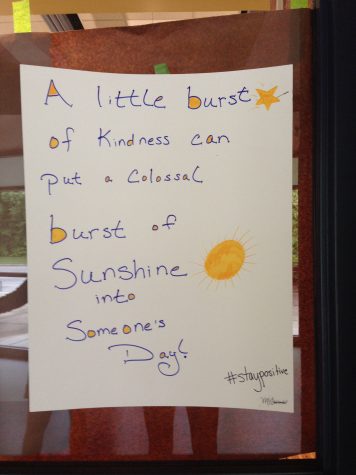 A little burst
of Kindness can
put a Colossal
burst of
Sunshine
into
Someone's
Day!
#staypositive